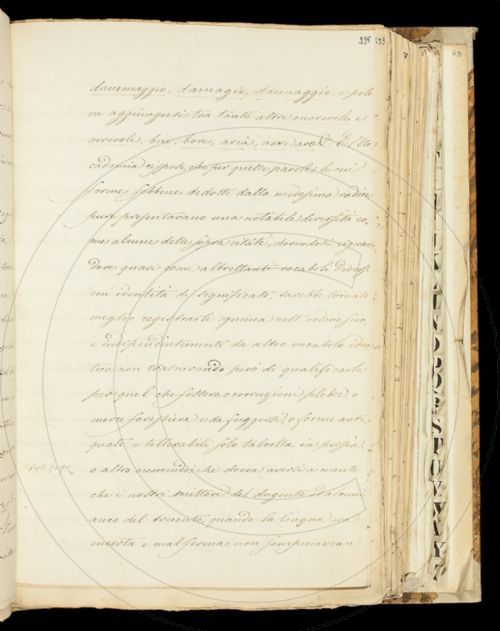 235 233
danemaggio, damagio, dannaggio, e pote
va aggiungersi tra tante altre onorevole e
orrevole, bre, bore, aria, aere
cademia rispose, che per quelle parole le cui
forme sebbene dedotte dalla medesima radice
pure presentavano una notabile diversità co
me alcune delle sopra citate, dovendosi riguar
dare quasi come altrettanti vocaboli diversi
con identità di significato, sarebbe tornato
meglio registrarle ognuna nell'ordine suo
e indipendentemente da altro vocabolo iden
tico, non trascurando però di qualificarle
per quel che fossero o corruzioni plebee, o
merce forestiera e da fuggirsi, o forme anti
quate, e tollerabili solo talvolta in poesia,
o altro occorrendo: che doveva aversi a mente
che i nostri scrittori del dugento ed alcuni
anco del trecento, quando la lingua era
incerta e mal ferma non sempre avean